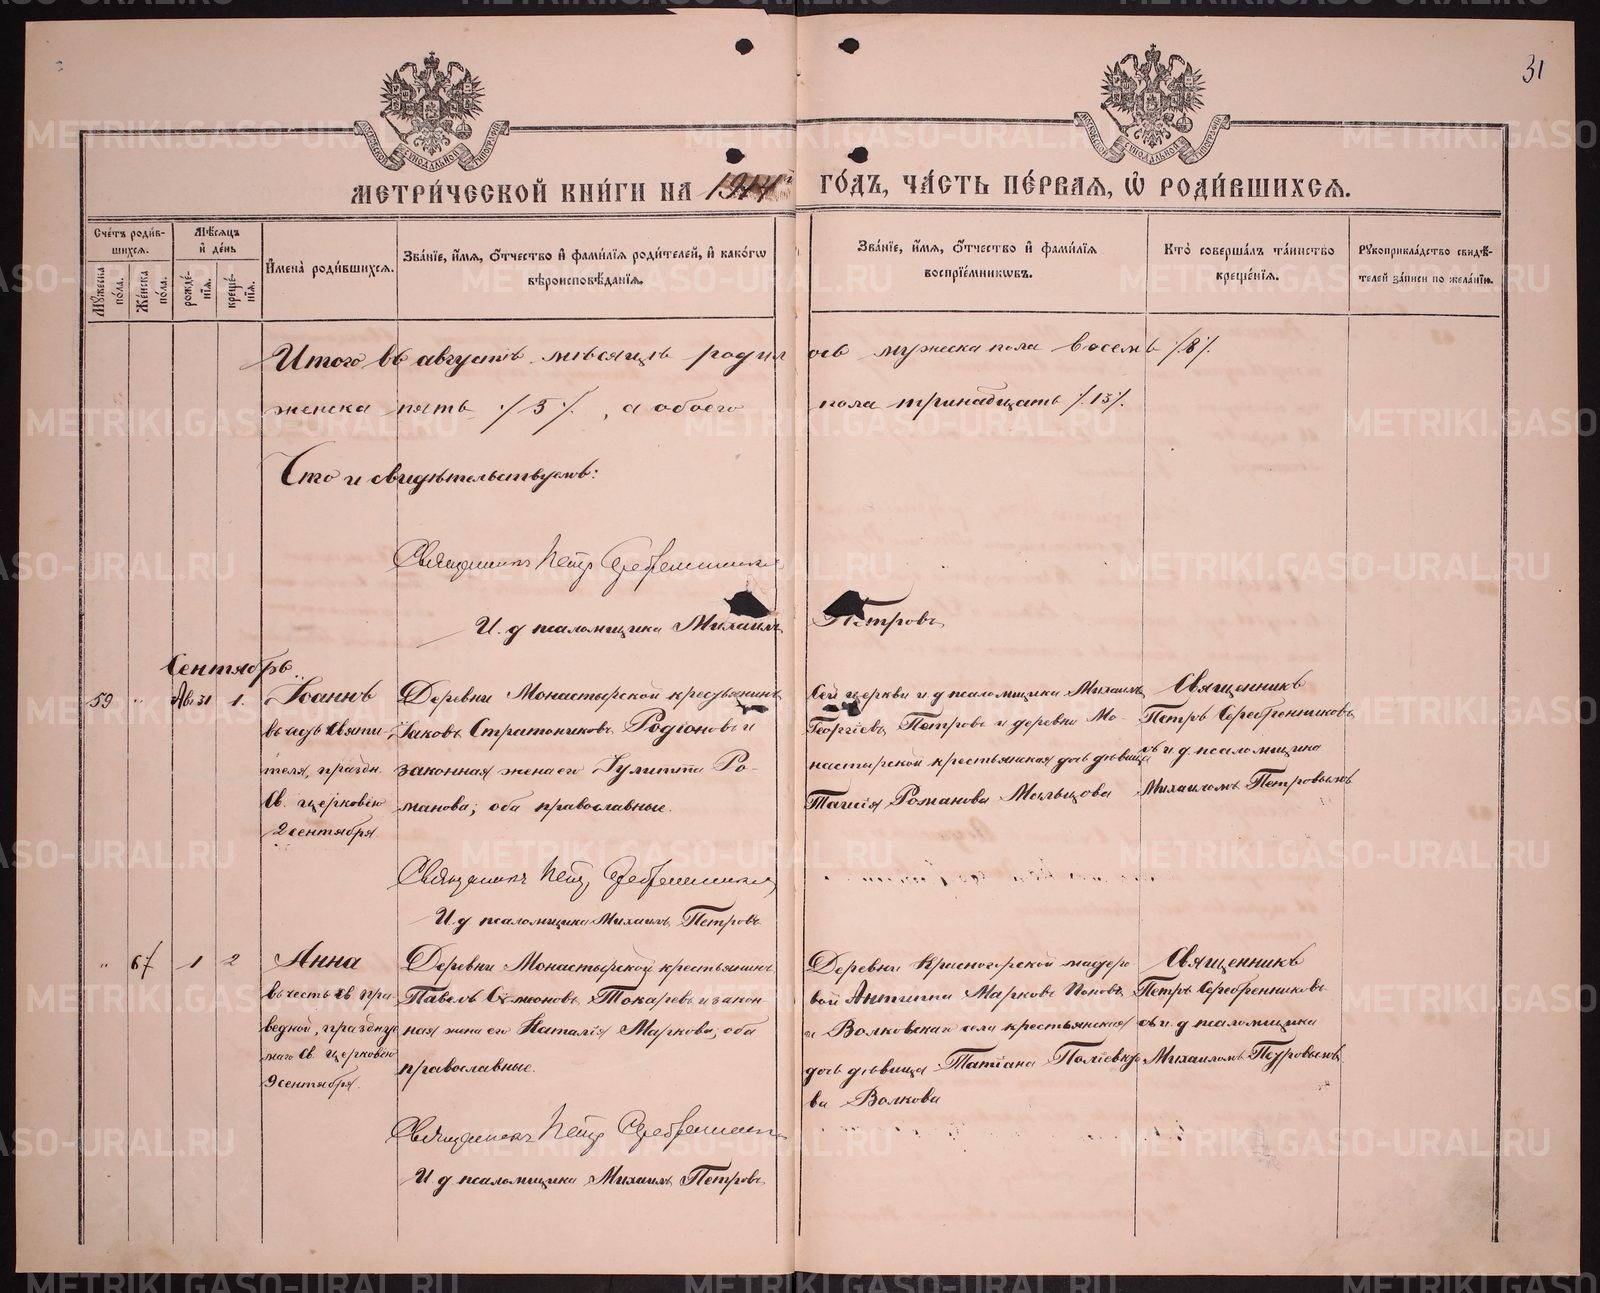 31
МЕТРИ́ЧЕСКОЙ КНИ́ГИ НА 1914 ГО́ДЪ, ЧА́СТЬ ПЕ́РВАЯ, Ѡ҆ РОДИ́ВШИХСЯ.
Сче́тъ роди́вшихся.
Му́жеска по́ла.
Же́нска по́ла.
Мѣ́сяцъ и҆ де́нь
рожде́нїя.
креще́нїя.
И҆мена̀ роди́вшихся.
Зва́нїе, и҆́мя, ѻ҆́тчество и҆ фами́лїя роди́телей, и҆ како́гѡ вѣроисповѣ́данїя.
Зва́нїе, и҆́мя, ѻ҆́тчество и҆ фами́лїя воспрїе́мникѡвъ.
Кто̀ соверша́лъ та́инство креще́нїя.
Рꙋкоприкла́дство свидѣ́телей за́писи по жела́нїю.
Итого въ августѣ мѣсяцѣ родилось мужеска пола восемь /8/.
женска пять /5/, а обоего пола тринадцать /13/.
Что и свидѣтельствуемъ:
Священникъ Петръ Серебренниковъ
И. д псаломщика Михаилъ Петровъ
Сентябрь
59 " Ав. 31 1. Іоаннъ
въ честь Святителя, праздн.
Св. церковію
2 сентября
Деревни Монастырской крестьянинъ
Іаковъ Стратониковъ Родіоновъ и
законная жена его Іулитта Романова; оба православные.
Сей церкви и. д псаломщика Михаилъ
Георгіевъ Петровъ и деревни Монастырской крестьянская дочь дѣвица
Таисія Романова Мальцова
Священникъ
Петръ Серебренниковъ
съ и. д псаломщика
Михаиломъ Петровымъ
Священникъ Петръ Серебренниковъ
И. д псаломщика Михаилъ Петровъ
" 67 1 2 Анна
въ честь св. праведной, празднуемаго Св. церковію
9 сентября.
Деревни Монастырской крестьянинъ
Павелъ Симеоновъ Токаревъ и законная жена его Наталія Маркова; оба
православные.
Деревни Красногорской
Антиппа Марковъ Поповъ
и Волковскаго села крестьянская
дочь дѣвица Татіана Поліевктова Волкова
Священникъ
Петръ Серебренниковъ
съ и. д псаломщика
Михаиломъ Петровымъ
Священникъ Петръ Серебренниковъ
И. д псаломщика Михаилъ Петровъ
METRIKI.GASO-URAL.RU